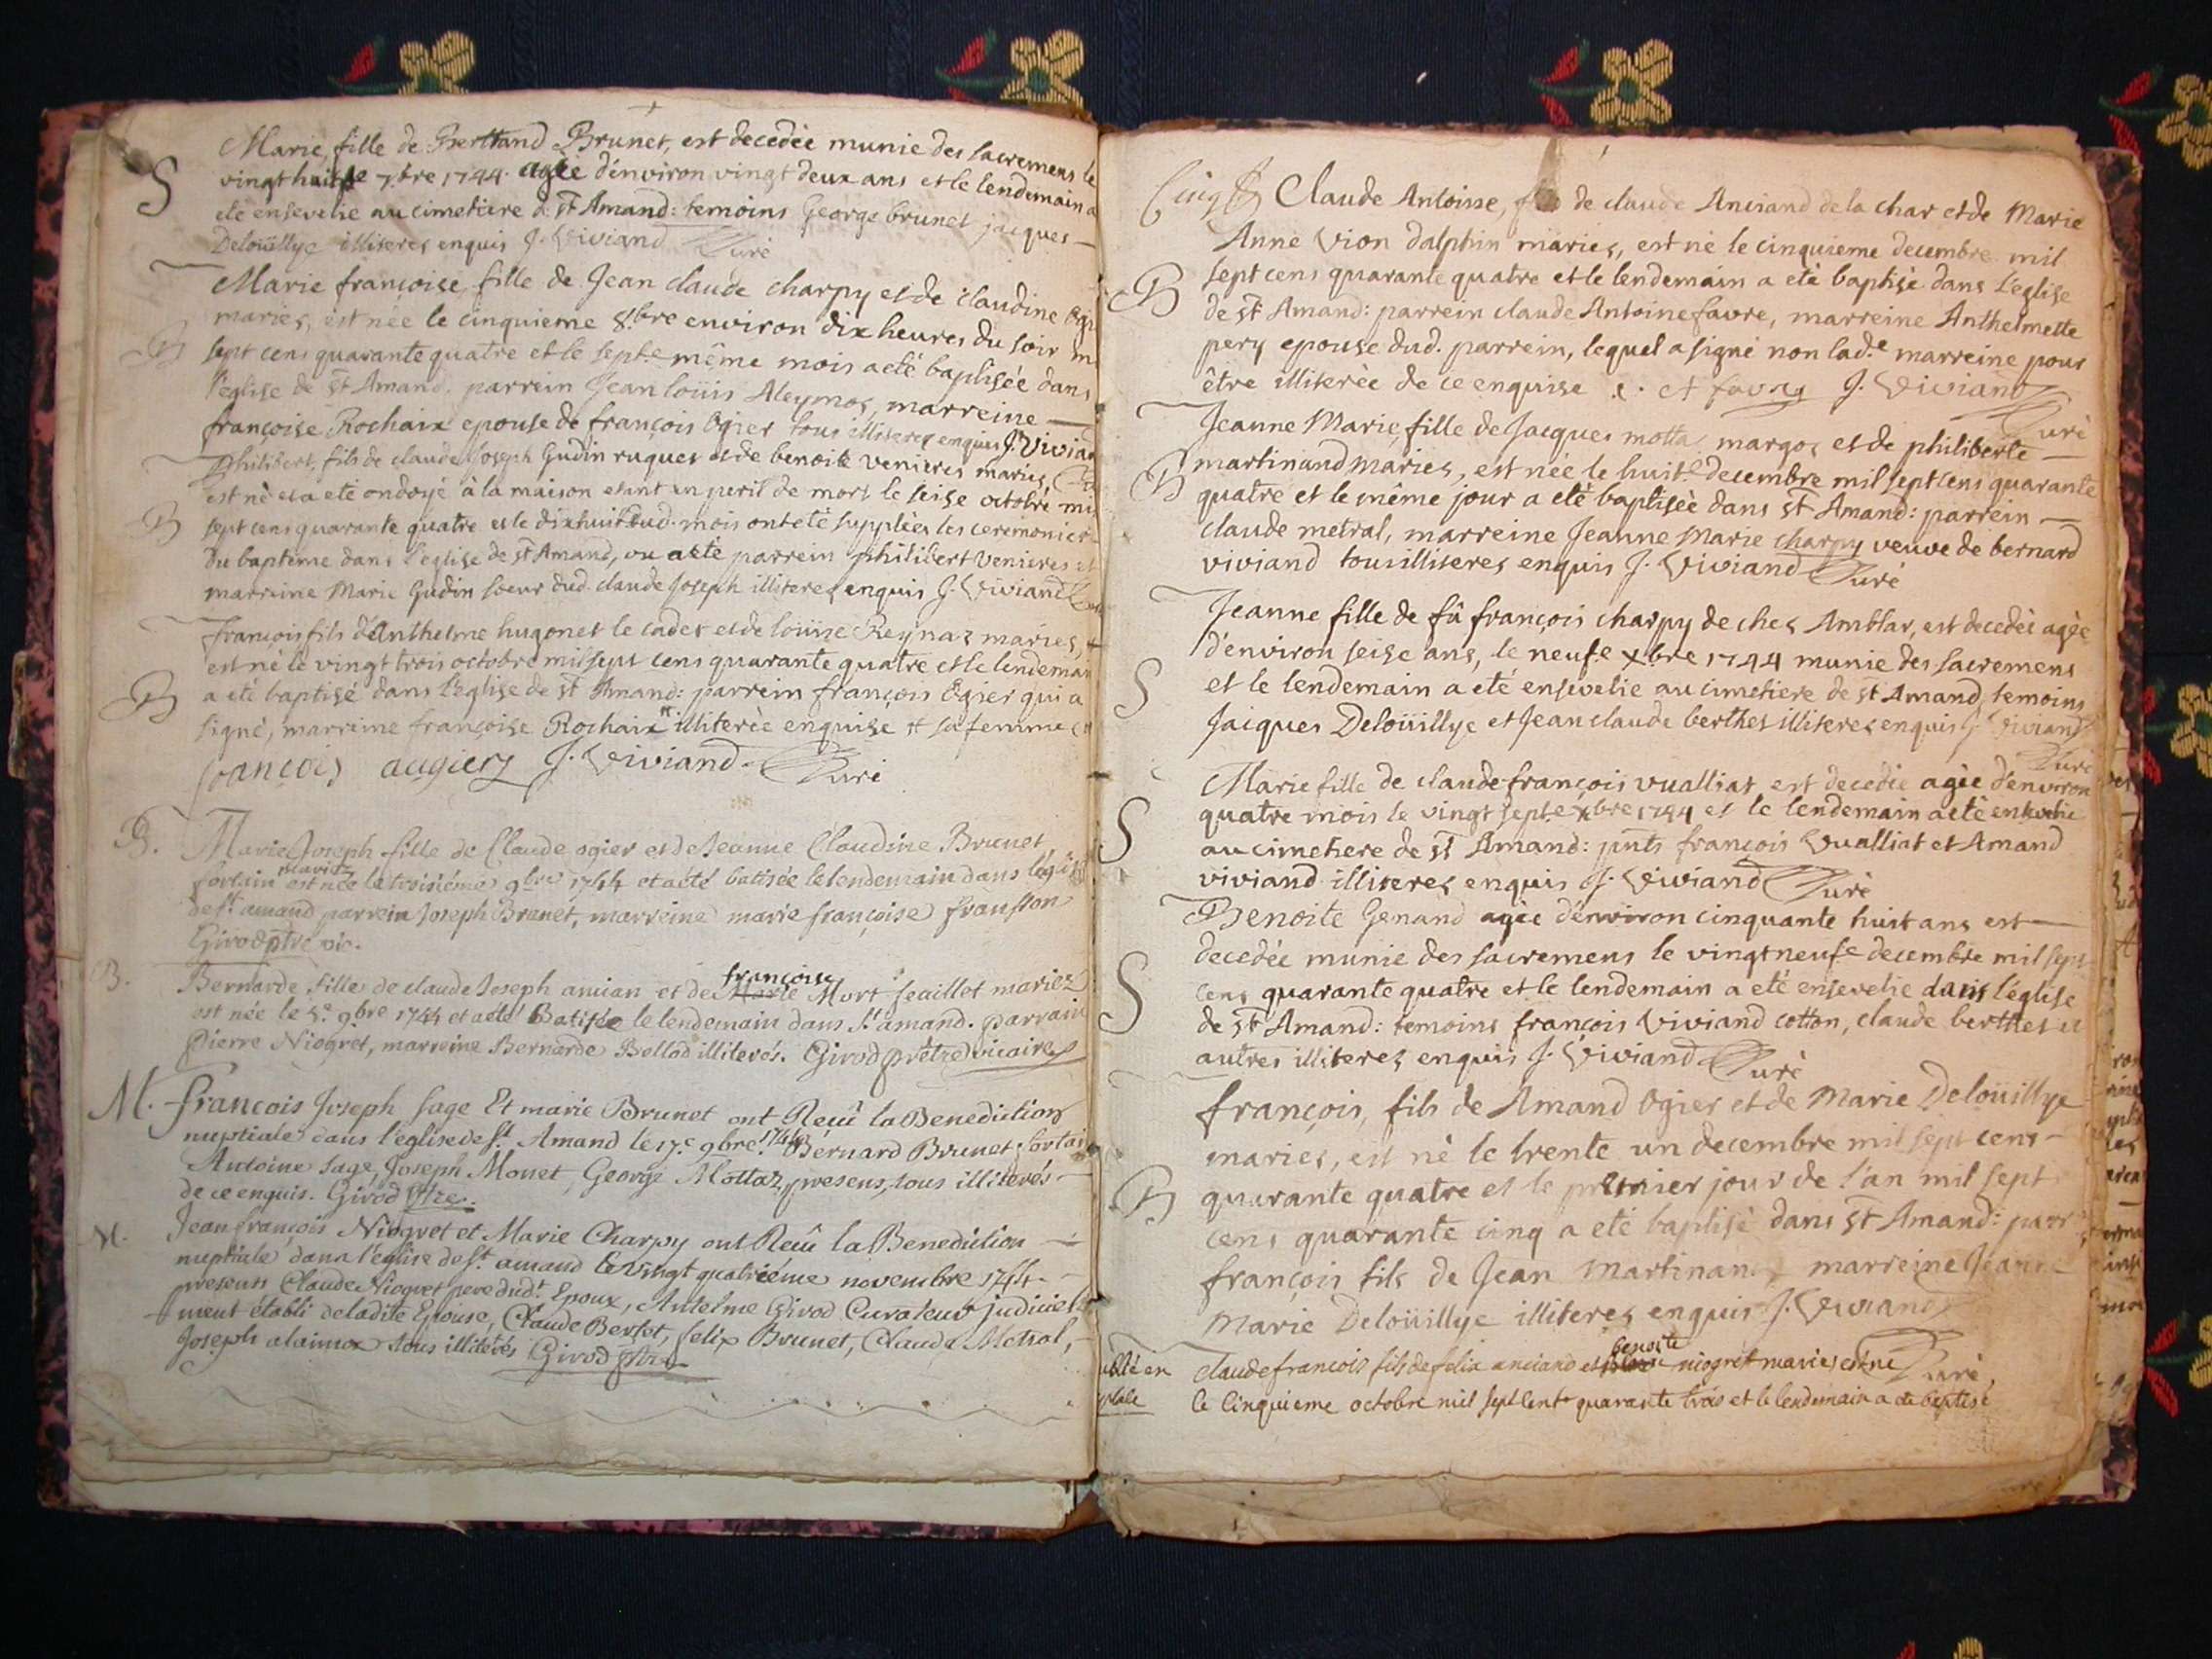 Marie, fille de Berttand Brunet, est decedée munie des sacremens le
S vingt huit.e 7bre 1744 agée d'environ vingt deux ans et le lendemain a
eté ensevelie au cimetiere de st Amand: temoins George brunet jacques —
Deloüillye illiteres enquis J. Viviand Curé
Marie françoise fille de Jean claude charpy et de claudine Ogi
mariés, est née le cinquieme 8.bre environ dix heures du soir m
B sept cens quarante quatre et le sept.e même mois a eté baptisée dans
l'eglise de st Amand. parrein Jean loüis Aleymoz, marreine —
françoise Rochaix epouse de françois Ogier tous illiteres enquis J. Vivian
Philibert, fils de claude Joseph Gudin ruques et de benoite venieres mariés,
est né et a eté ondoyé à la maison etant en peril de mort le seise octobre mil
B sept cens quarante quatre et le dixhuit dud. mois ont eté suppléés les ceremonies
du baptême dans l'eglise de st Amand, ou a eté parrein philibert venieres et
marreine Marie Gudin soeur dud. claude Joseph illiteres enquis J. Viviand
françois fils d'Anthelme hugonet le cadet et de loüise Reynaz mariés,
est né le vingt trois octobre mil sept cens quarante quatre et le lendemain
B a eté baptisé dans l'eglise de st Amand: parrein françois Ogier qui a
signé, marreine françoise Rochaix illiterée enquise # sa femme
françois augiery J. Viviand. Curé
B. Marie Joseph fille de Claude ogier et de Jeanne Claudine Brunet
fortain mariez est née le troisiéme 9bre 1744 et a eté batisée le lendemain dans l'eglise
de st. amand parrein Joseph Brunet, marreine marie françoise
Girod ptre vic.
B. Bernarde fille de claude Joseph ancian et de Marie françoise Mort seaillet mariez
est née le 5.e 9bre 1744 et a eté Batisée le lendemain dans st. amand. parrain
Pierre Niogret, marreine Bernarde Bellod illiterés. Girod prêtre vicaire
M. françois Joseph Sage Et marie Brunet ont Reçû la Benediction
nuptiale dans l'eglise de st. Amand le 17.e 9bre. 1744 Bérnard Brunet fortai
Antoine Sage, Joseph Monet, George Mottaz, presens, tous illiterés —
de ce enquis. Girod ptre.
M. Jean françois Niogret et Marie Charpy ont Reçû la Benediction —
nuptiale dans l'église de st. amand le vingt quatriéme novembre 1744 —
presents Claude Niogret pere dud.t Epoux, Antelme Girod Curateur judiciel-
-ment établi de ladite Epouse, Claude Bertet, felix Brunet, Claude Metral,
Joseph alaimox tous illiterés Girod ptre
Claude Antoisne, fils de claude Anciand de la char et de Marie
Anne Vion dalphin mariés, est né le cinquieme decembre mil
B sept cens quarante quatre et le lendemain a eté baptisé dans l'eglise
de st Amand: parrein claude Antoine favre, marreine Anthelmette
pery epouse dud. parrein, lequel a signé non lad.e marreine pour
être illiterée de ce enquise J. Viviand
Curé
Jeanne Marie, fille de Jacques motta margos et de philiberte —
B martinand mariés, est née le huit.e decembre mil sept cens quarante
quatre et le même jour a eté baptisée dans st Amand: parrein —
claude metral, marreine Jeanne Marie charpy veuve de bernard
viviand tous illiteres enquis J. Viviand Curé
Jeanne fille de fû françois charpy de ches Amblar, est decedée agée
d'environ seise ans, le neuf.e xbre 1744 munie des sacremens
S et le lendemain a eté ensevelie au cimetiere de st Amand, temoins
Jacques Deloüillye et Jean claude berthet illiteres enquis J. Viviand
Curé
Marie fille de claude françois vualliat est decedée agée d'environ
quatre mois le vingt sept.e xbre 1744 et le lendemain a eté ensevelie
S au cimetiere de st Amand: pnts françois Vualliat et Amand
viviand illiteres enquis J. Viviand Curé
Benoite Genand agée d'environ cinquante huit ans est —
decedée munie des sacremens le vingt neuf.e decembre mil sept
S cens quarante quatre et le lendemain a eté ensevelie dans l'église
de st Amand: temoins françois Viviand cotton, claude berthet et
autres illiteres enquis J. Viviand Curé
françois, fils de Amand Ogier et de Marie Deloüillye
mariés, est né le trente un decembre mil sept cens —
B quarante quatre et le premier jour de l'an mil sept
cens quarante cinq a eté baptisé dans st Amand: parr
françois fils de Jean Martinand, marreine Jeanne
Marie Deloüillye illiteres enquis J. Viviand
Curé
claude francois fils de felix anciand et benoite niogret mariés est né
le Cinquieme octobre mil sept cent quarante trois et le lendemain a eté baptisé